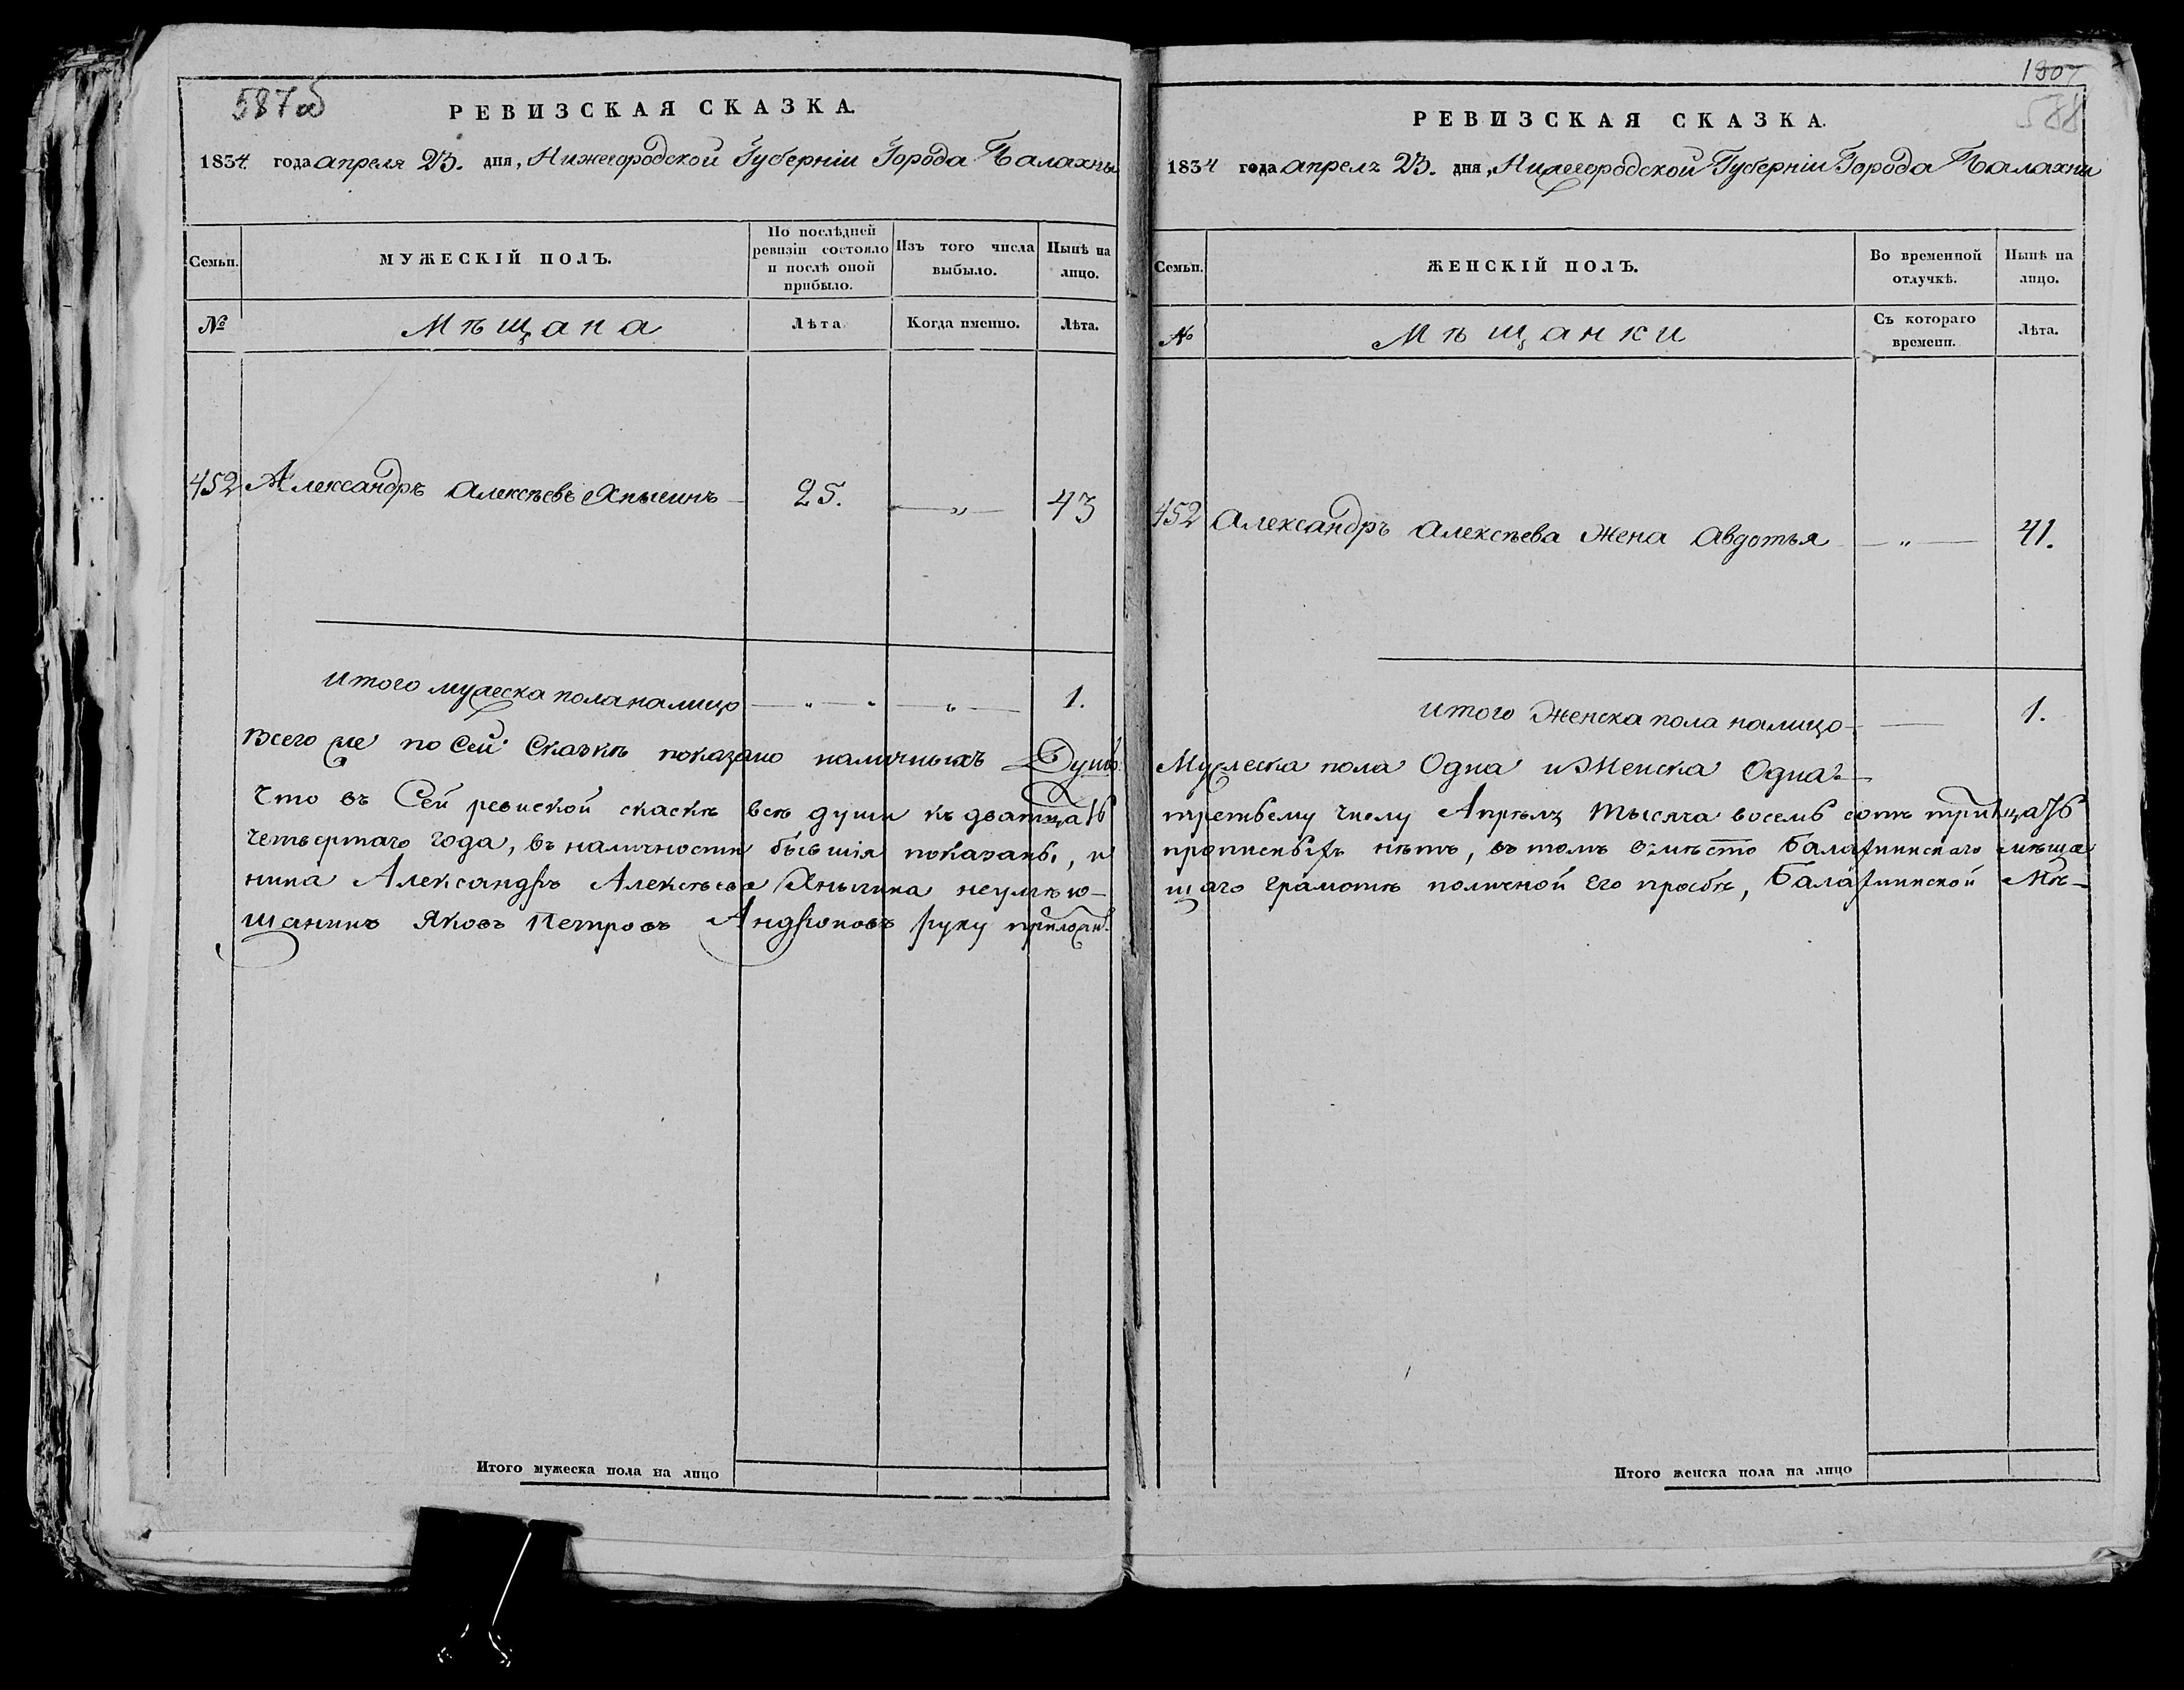 587об
РЕВИЗСКАЯ СКАЗКА.
1834 года апреля 23. дня, Нижегородской Губерніи Города Балахны
Семьи.
МУЖЕСКІЙ ПОЛЪ.
По послѣдней ревизіи состояло и послѣ оной прибыло.
Изъ того числа выбыло.
Нынѣ на лицо.
№
Мѣщана
Лѣта
Когда именно.
Лѣта.
452 Александръ Алексѣевъ Хныгинъ 25. — „ — 43
итого мужеска пола налицо — „ — „ — „ — 1.
Всего же по сей Сказкѣ показано наличныхъ Душъ
Что въ Сей ревиской скаскѣ всѣ души къ дватцать
четвертаго года, въ наличности бывшія показаны, и
нина Александръ Алексѣева Хныгина неумѣю-
щанинъ Яковъ Петровъ Андроновъ руку приложилъ
Итого мужеска пола на лицо
1307
588
РЕВИЗСКАЯ СКАЗКА.
1834 года апреля 23. дня, Нижегородской Губерніи Города Балахны
Семьи.
ЖЕНСКІЙ ПОЛЪ.
Во временной отлучкѣ.
Нынѣ на лицо.
№
Мѣщанки
Съ котораго времени.
Лѣта.
452 Александръ Алексѣева Жена Авдотья — „ — 41.
итого Женска пола налицо — 1.
Мужеска пола Одна и Женска Одна
третьему числу Апрѣля тысяча восемь сотъ тритцать
прописныхъ нѣтъ, въ томъ вмѣсто Балахнинскаго мѣща
щаго грамотѣ поличной его прозбѣ, Балахнинской Мѣ-
Итого женска пола на лицо